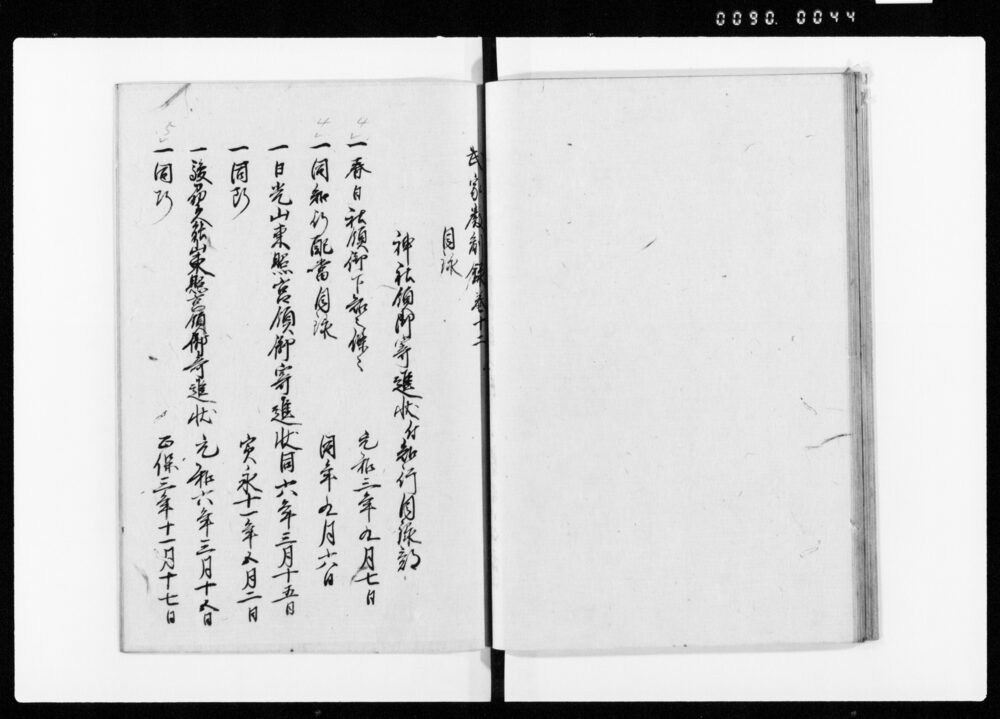 0090.0044
武家厳制録巻十二
目録
神社領御寄進状付知行目録部
一春日社領御下知之条々 元和三年九月七日
一同知行配当目録 同年九月十六日
一日光山東照宮領御寄進状同六年三月十五日
一同断 寛永十一年五月二日
一駿州久能山東照宮領御寄進状 元和六年三月十五日
一同断 正保三年十一月十七日